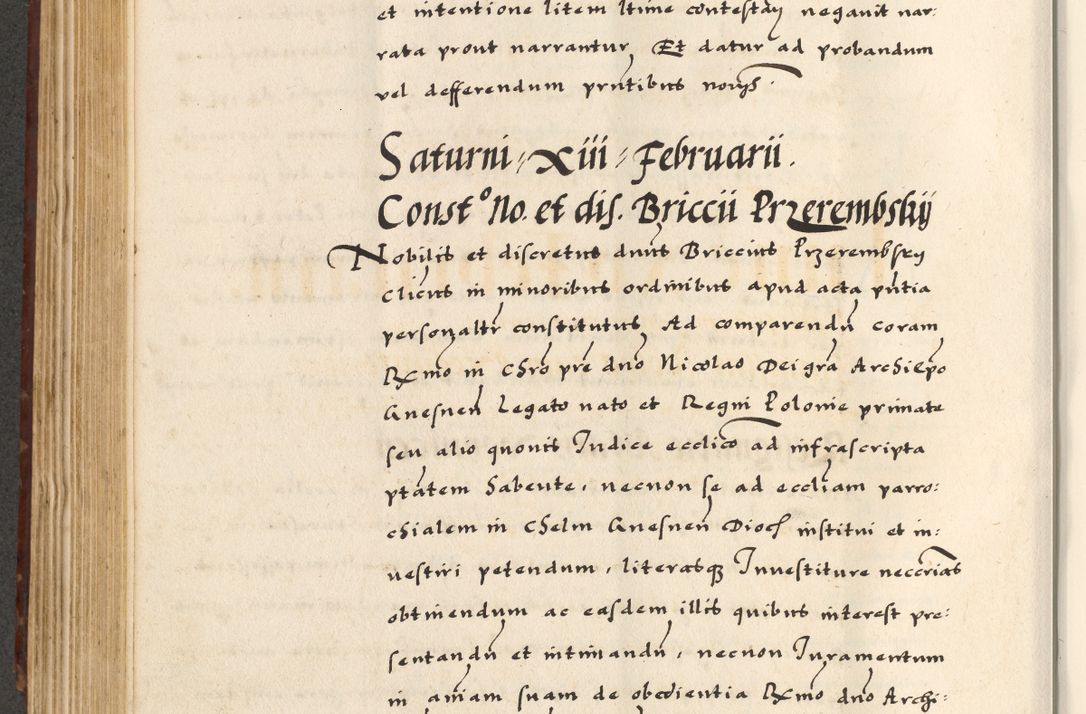 et intentione litem ltime contestan negavit nar:
rata prout narrantur, Et datur ad probandum
vel defferendum pntibus
Saturni, Xiii, Februarii.
Constᵒ No. et dis. Briccii Przerembskij
Nobilis et discretus dnus Briccius Przerembsky
Clicus in minoribus ordinibus apud acta pntia
personaltr constitutus, Ad comparendū coram
Rxmo in Chro pre dno Nicolao Dei gra Archiepo
Gnesnen Legato nato et Regni Polonie primate
seu alio quovis Iudice ecclico ad infrascripta
ptatem habente, necnon se ad eccliam parro:
chialem in Chelm Gnesnen Dioc̄ institui et in:
vestiri petendum, literasq Investiture neccrias
obtinendum ac easdem illis quibus interest pre:
sentandū et intimandū, necnon Iuramentum
in aniam suam de obedientia Rxmo dno Archi: